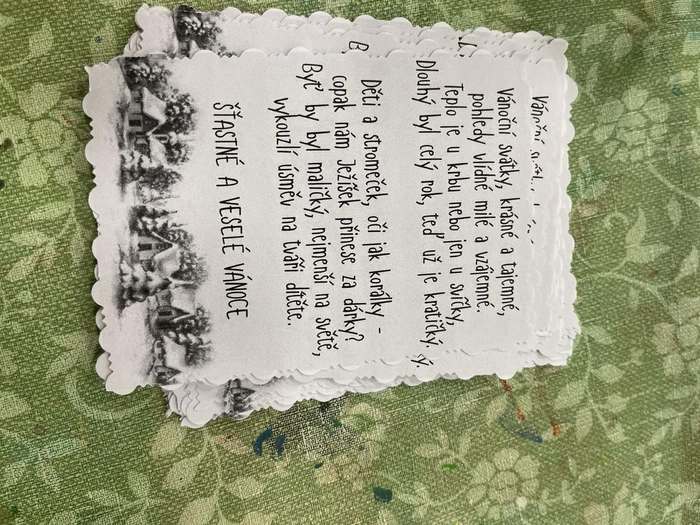 Vánoční svátky, krásné a tajemné,
pohledy vlídné milé a vzájemné.
Teplo je u krbu nebo jen u svíčky,
Dlouhý byl celý rok, teď už je kratičký.
Děti a stromeček, oči jak korálky -
copak nám Ježíšek přinese za dárky?
Byť by byl maličký, nejmenší na světě,
vykouzlí úsměv na tváři dítěte.
ŠŤASTNÉ A VESELÉ VÁNOCE